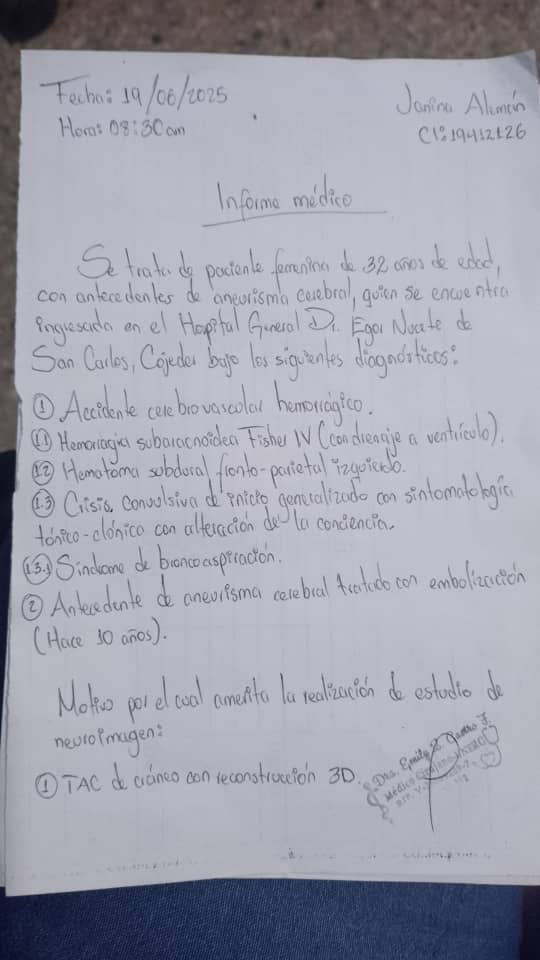 Fecha: 19/06/2025
Hora: 08:30am
Janina Alemán
CI: 19412126
Informe médico
Se trata de paciente femenina de 32 años de edad,
con antecedentes de aneurisma cerebral, quien se encuentra
ingresada en el Hospital General Dr. Egor Nucete de
San Carlos, Cojedes bajo los siguientes diagnósticos:
① Accidente cerebrovascular hemorrágico.
1.1 Hemorragia subaracnoidea Fisher IV (con drenaje a ventrículo).
1.2 Hematoma subdural fronto-parietal izquierdo.
1.3 Crisis convulsiva de inicio generalizado con sintomatología
tónico-clónica con alteración de la conciencia.
1.3.1 Síndrome de broncoaspiración.
② Antecedente de aneurisma cerebral tratado con embolización
(Hace 10 años).
Motivo por el cual amerita la realización de estudio de
neuroimagen:
① TAC de cráneo con reconstrucción 3D.
Dra. Emily
Médico Cirujano